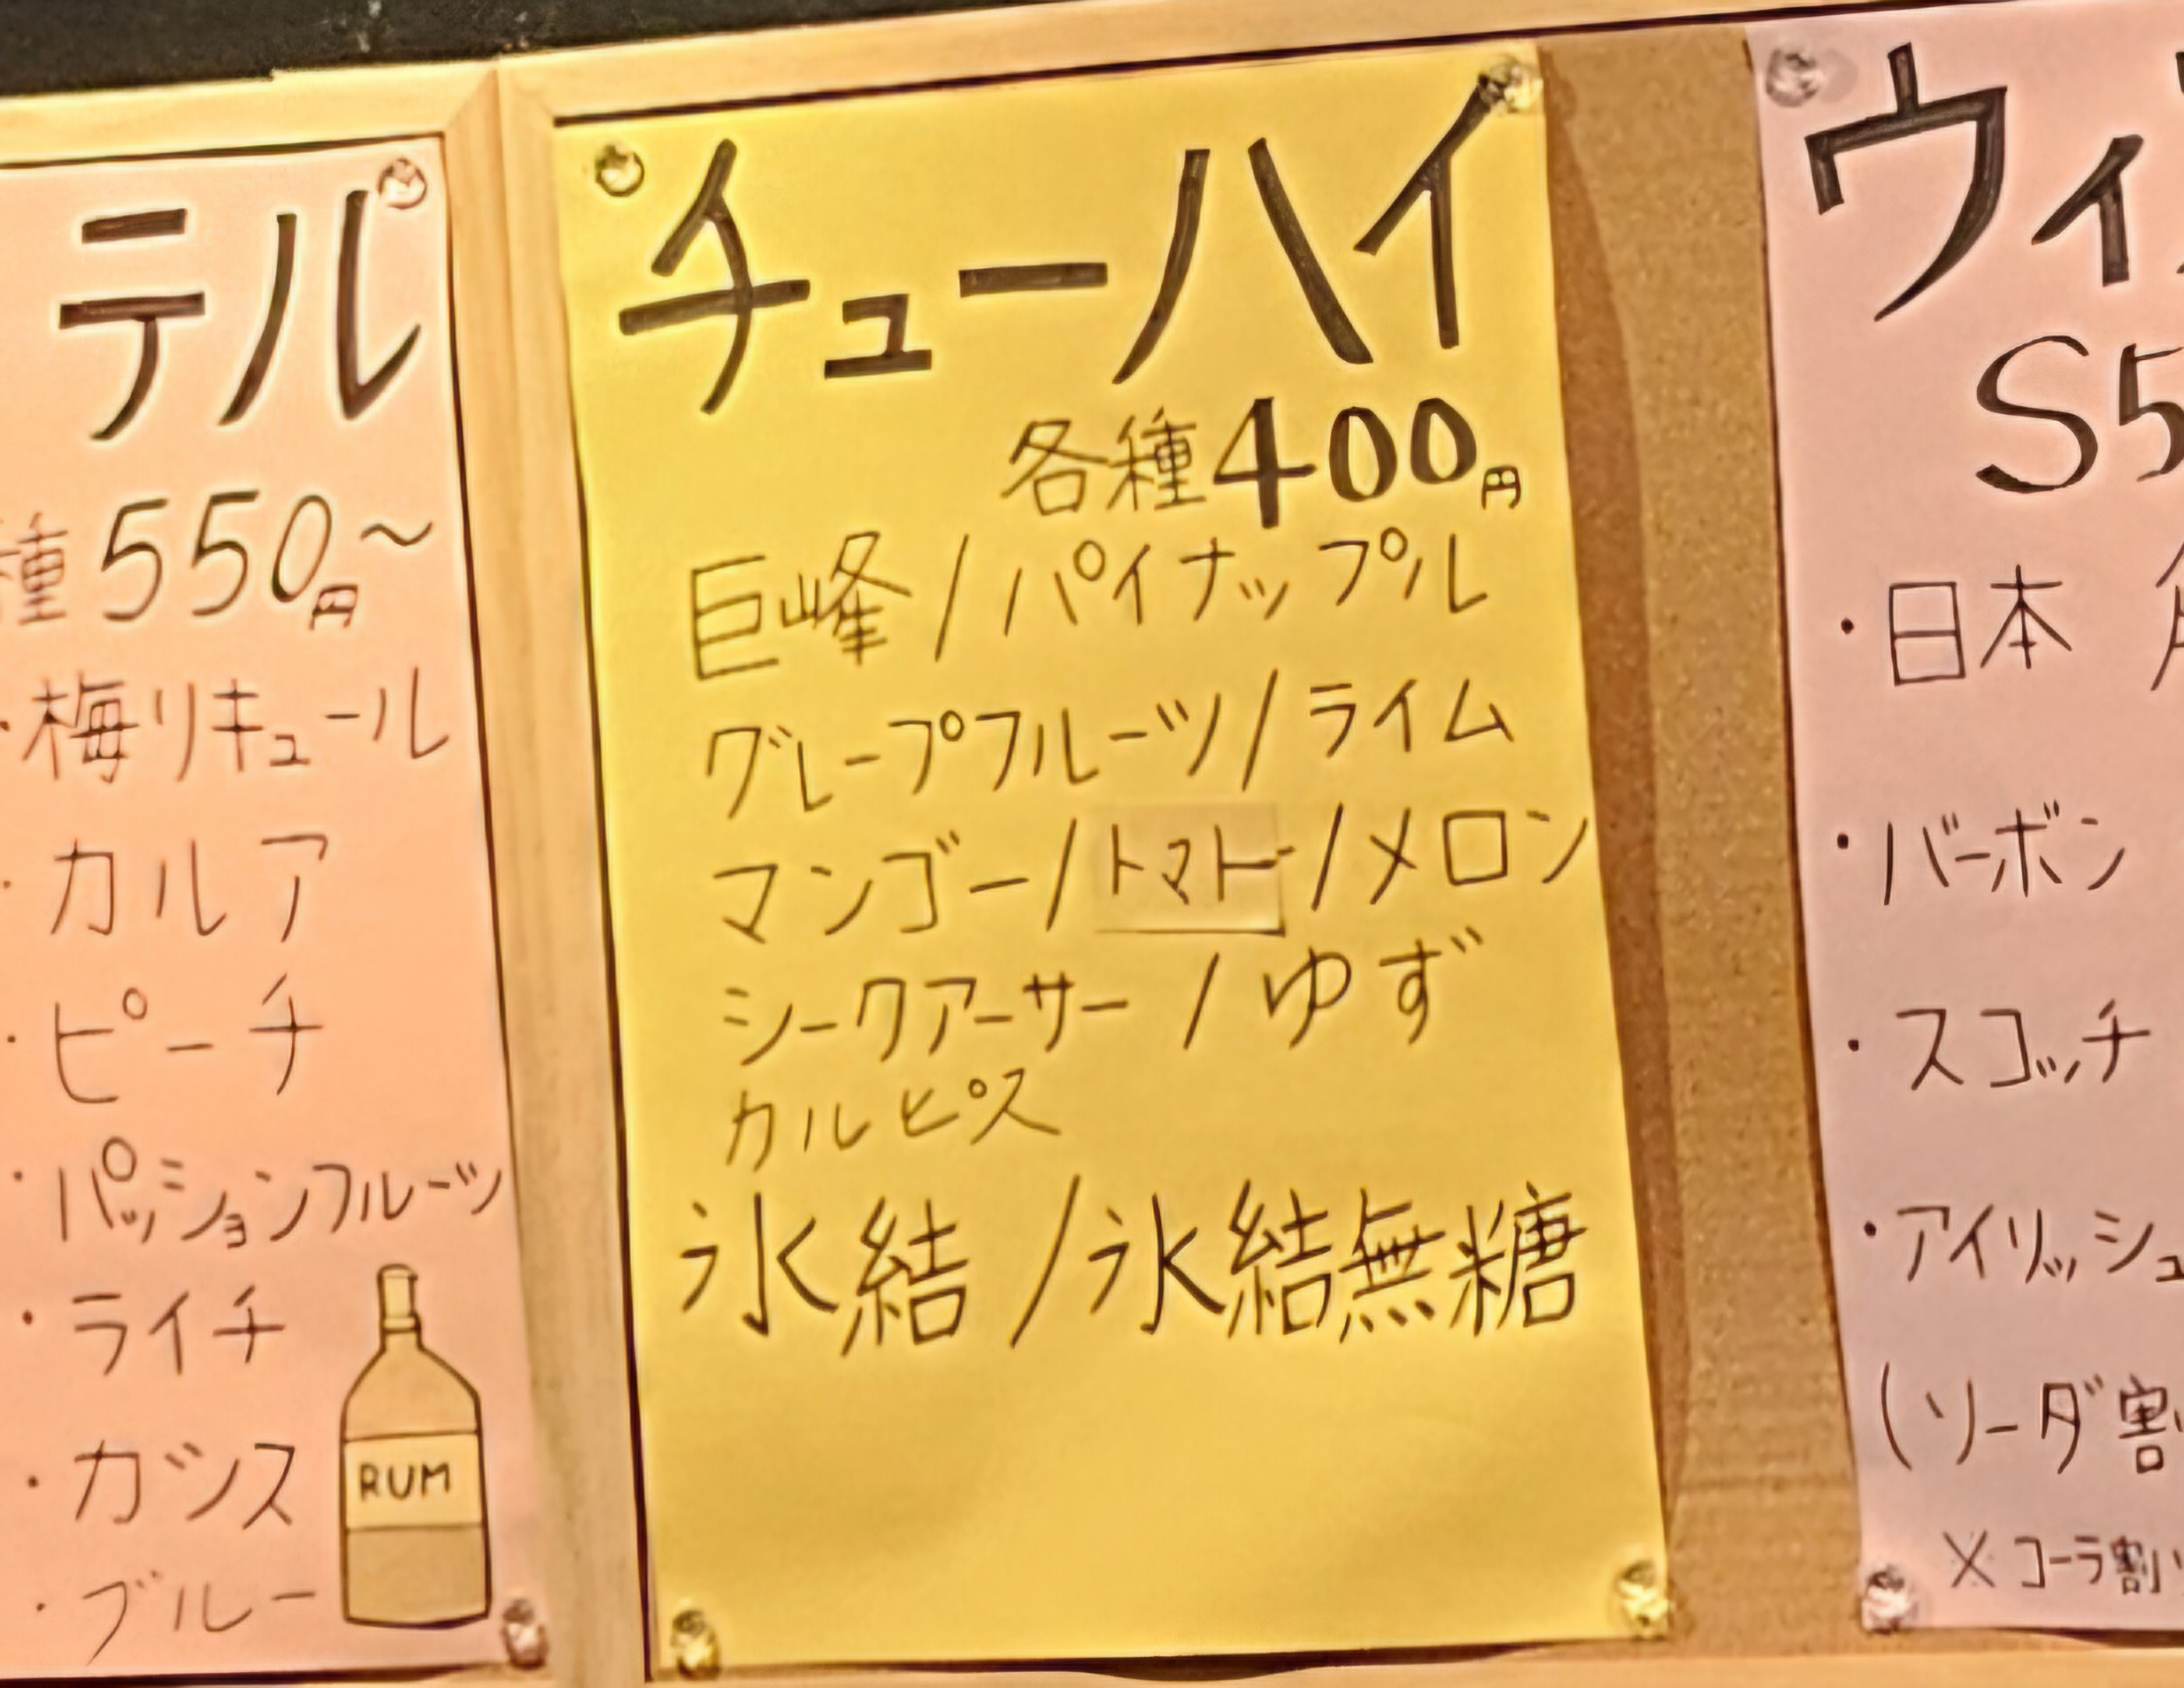 テル
種 550円～
・梅リキュール
・カルア
・ピーチ
・パッションフルーツ
・ライチ
・カシス
・ブルー
RUM
チューハイ
各種400円
巨峰/パイナップル
グレープフルーツ/ライム
マンゴー/トマト/メロン
シークアーサー/ゆず
カルピス
氷結/氷結無糖
ウィ
S5
・日本
・バーボン
・スコッチ
・アイリッシュ
(ソーダ割
※コーラ割い